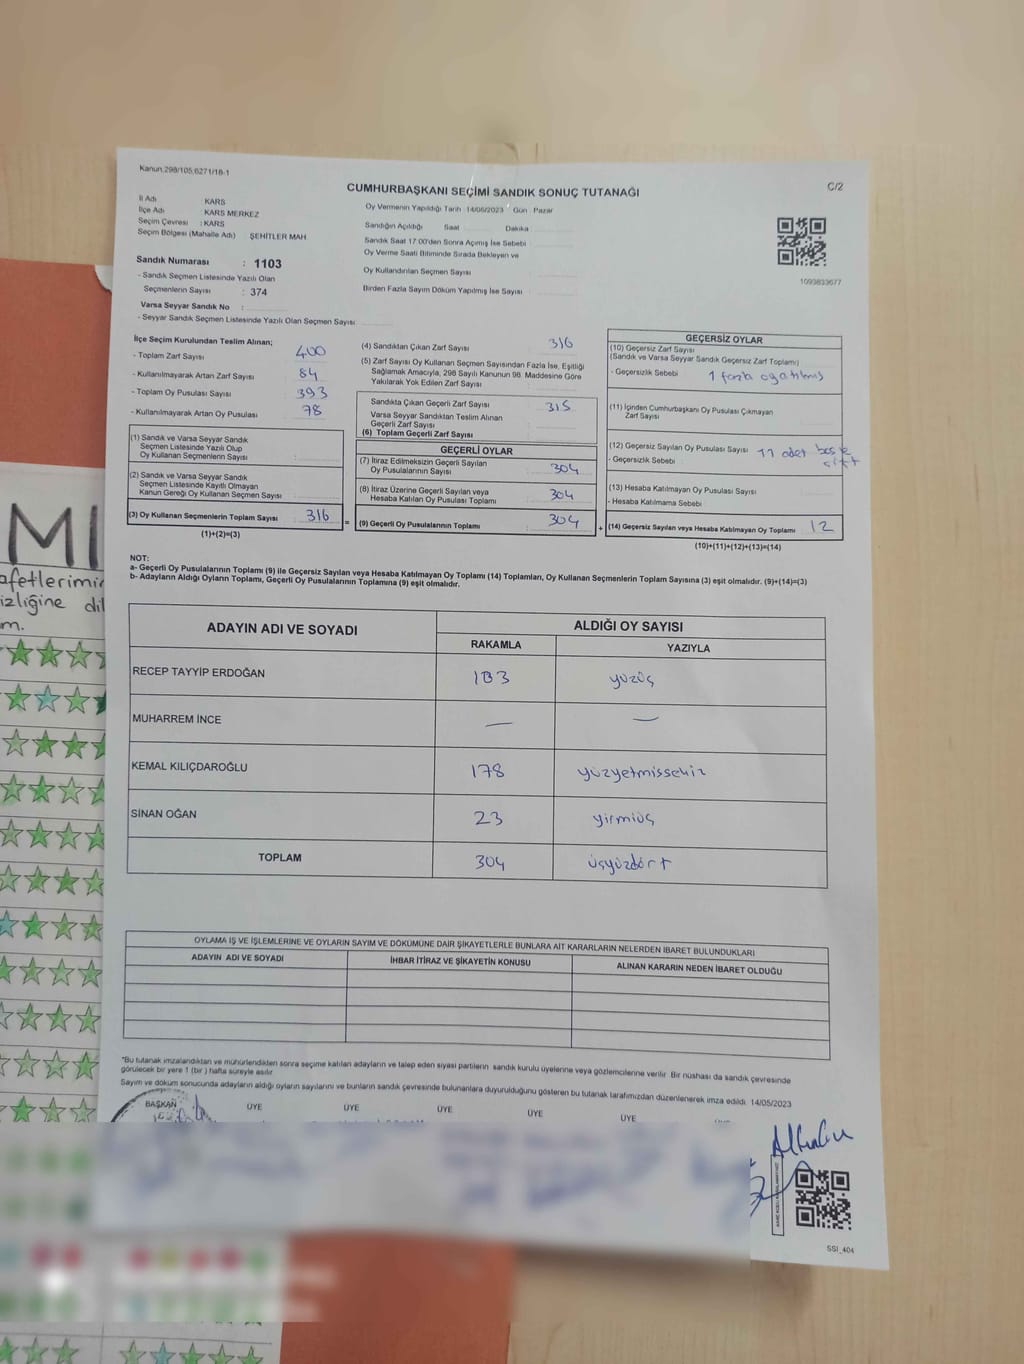 Kanun 298/105,6271/16-1
C/2
CUMHURBAŞKANI SEÇİMİ SANDIK SONUÇ TUTANAĞI
İl Adı KARS
İlçe Adı KARS MERKEZ
Seçim Çevresi : KARS
Seçim Bölgesi (Mahalle Adı) ŞEHİTLER MAH
Sandık Numarası : 1103
- Sandık Seçmen Listesinde Yazılı Olan
Seçmenlerin Sayısı : 374
Varsa Seyyar Sandık No :
- Seyyar Sandık Seçmen Listesinde Yazılı Olan Seçmen Sayısı
Oy Vermenin Yapıldığı Tarih 14/05/2023 Gün Pazar
Sandığın Açıldığı Saat Dakika
Sandık Saat 17:00'den Sonra Açımış İse Sebebi
Oy Verme Saati Bitiminde Sırada Bekleyen ve
Oy Kullandırılan Seçmen Sayısı
Birden Fazla Sayım Döküm Yapılmış İse Sayısı
1093833677
İlçe Seçim Kurulundan Teslim Alınan;
- Toplam Zarf Sayısı 400
- Kullanılmayarak Artan Zarf Sayısı 84
- Toplam Oy Pusulası Sayısı 393
- Kullanılmayarak Artan Oy Pusulası 78
(1) Sandık ve Varsa Seyyar Sandık
Seçmen Listesinde Yazılı Olup
Oy Kullanan Seçmenlerin Sayısı
(2) Sandık ve Varsa Seyyar Sandık
Seçmen Listesinde Kayıtlı Olmayan
Kanun Gereği Oy Kullanan Seçmen Sayısı
(3) Oy Kullanan Seçmenlerin Toplam Sayısı 316 =
(1)+(2)=(3)
(4) Sandıktan Çıkan Zarf Sayısı 316
(5) Zarf Sayısı Oy Kullanan Seçmen Sayısından Fazla İse, Eşitliği
Sağlamak Amacıyla, 298 Sayılı Kanunun 98. Maddesine Göre
Yakılarak Yok Edilen Zarf Sayısı
Sandıkta Çıkan Geçerli Zarf Sayısı 315
Varsa Seyyar Sandıktan Teslim Alınan
Geçerli Zarf Sayısı
(6) Toplam Geçerli Zarf Sayısı
GEÇERLİ OYLAR
(7) İtiraz Edilmeksizin Geçerli Sayılan
Oy Pusulalarının Sayısı 304
(8) İtiraz Üzerine Geçerli Sayılan veya
Hesaba Katılan Oy Pusulası Toplamı 304
(9) Geçerli Oy Pusulalarının Toplamı 304 +
GEÇERSİZ OYLAR
(10) Geçersiz Zarf Sayısı
(Sandık ve Varsa Seyyar Sandık Geçersiz Zarf Toplamı)
- Geçersizlik Sebebi 1 fazla
(11) İçinden Cumhurbaşkanı Oy Pusulası Çıkmayan
Zarf Sayısı
(12) Geçersiz Sayılan Oy Pusulası Sayısı 11 adet boş ve
- Geçersizlik Sebebi çift
(13) Hesaba Katılmayan Oy Pusulası Sayısı
- Hesaba Katılmama Sebebi
(14) Geçersiz Sayılan veya Hesaba Katılmayan Oy Toplamı 12
(10)+(11)+(12)+(13)=(14)
NOT:
a- Geçerli Oy Pusulalarının Toplamı (9) ile Geçersiz Sayılan veya Hesaba Katılmayan Oy Toplamı (14) Toplamları, Oy Kullanan Seçmenlerin Toplam Sayısına (3) eşit olmalıdır. (9)+(14)=(3)
b- Adayların Aldığı Oyların Toplamı, Geçerli Oy Pusulalarının Toplamına (9) eşit olmalıdır.
ADAYIN ADI VE SOYADI ALDIĞI OY SAYISI
RAKAMLA YAZIYLA
RECEP TAYYİP ERDOĞAN 103 yüzüç
MUHARREM İNCE — —
KEMAL KILIÇDAROĞLU 178 yüzyetmissekiz
SİNAN OĞAN 23 yirmiüç
TOPLAM 304 üçyüzdört
OYLAMA İŞ VE İŞLEMLERİNE VE OYLARIN SAYIM VE DÖKÜMÜNE DAİR ŞİKAYETLERLE BUNLARA AİT KARARLARIN NELERDEN İBARET BULUNDUKLARI
ADAYIN ADI VE SOYADI İHBAR İTİRAZ VE ŞİKAYETİN KONUSU ALINAN KARARIN NEDEN İBARET OLDUĞU
*Bu tutanak imzalandıktan ve mühürlendikten sonra seçime katılan adayların ve talep eden siyasi partilerin sandık kurulu üyelerine veya gözlemcilerine verilir. Bir nüshası da sandık çevresinde
görülecek bir yere 1 (bir ) hafta süreyle asılır
Sayım ve döküm sonucunda adayların aldığı oyların sayılarını ve bunların sandık çevresinde bulunanlara duyurulduğunu gösteren bu tutanak tarafımızdan düzenlenerek imza edildi. 14/05/2023
BAŞKAN ÜYE ÜYE ÜYE ÜYE ÜYE
SSI_404
MI
afetlerimi
izliğine dil
m.